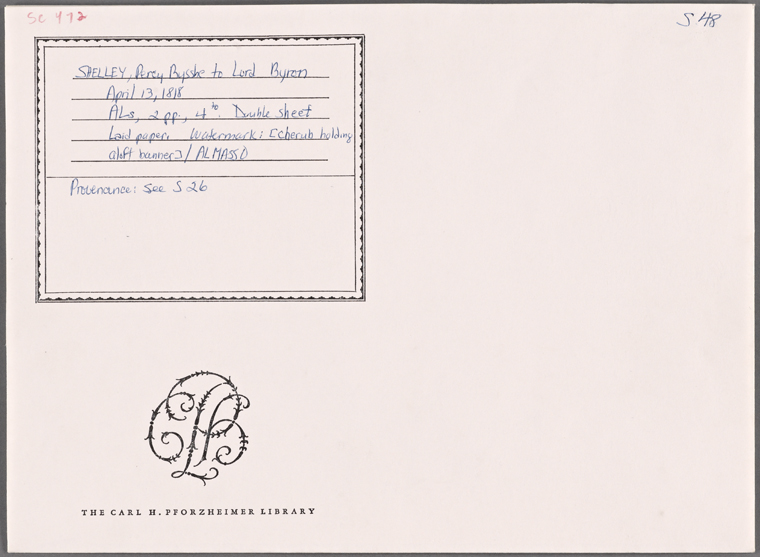 SC 472
S 48
SHELLEY, Percy Bysshe to Lord Byron
April 13, 1818
ALs, 2 pp., 4to. Double sheet
Laid paper. Watermark: [cherub holding
aloft banner] / ALMASSO
Provenance: see S 26
THE CARL H. PFORZHEIMER LIBRARY